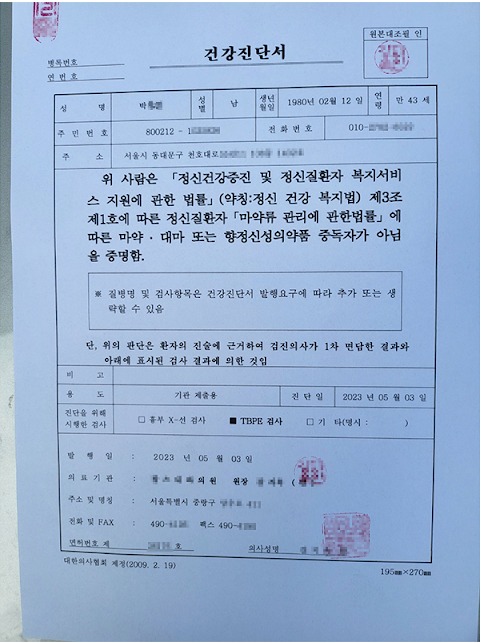 건강진단서
원본대조필 인
병록번호
연 번 호
성 명 박 성별 남 생년월일 1980년 02월 12 일 연령 만 43 세
주 민 번 호 800212 - 1 전 화 번 호 010-
주 소 서울시 동대문구 천호대로
위 사람은 「정신건강증진 및 정신질환자 복지서비
스 지원에 관한 법률」(약칭:정신 건강 복지법) 제3조
제1호에 따른 정신질환자「마약류 관리에 관한법률」에
따른 마약 · 대마 또는 향정신성의약품 중독자가 아님
을 증명함.
※ 질병명 및 검사항목은 건강진단서 발행요구에 따라 추가 또는 생
략할 수 있음
단, 위의 판단은 환자의 진술에 근거하여 검진의사가 1차 면담한 결과와
아래에 표시된 검사 결과에 의한 것임
비 고
용 도 기관 제출용 진 단 일 2023 년 05 월 03 일
진단을 위해
시행한 검사 □ 흉부 X-선 검사 ■ TBPE 검사 □ 기 타(명시 : )
발 행 일 : 2023 년 05 월 03 일
의 료 기 관 : 의원 원장
주소 및 명칭 : 서울특별시 중랑구
전화 및 FAX : 490- 팩스 490-
면허번호 제 호 의사성명
대한의사협회 제정(2009. 2. 19) 195㎜×270㎜